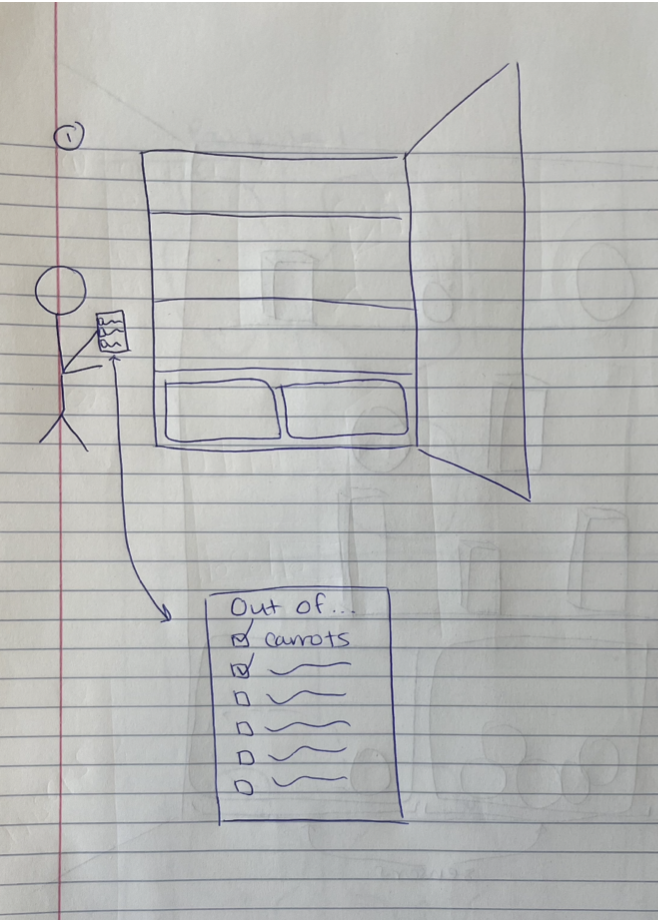 1
Out of...
carrots